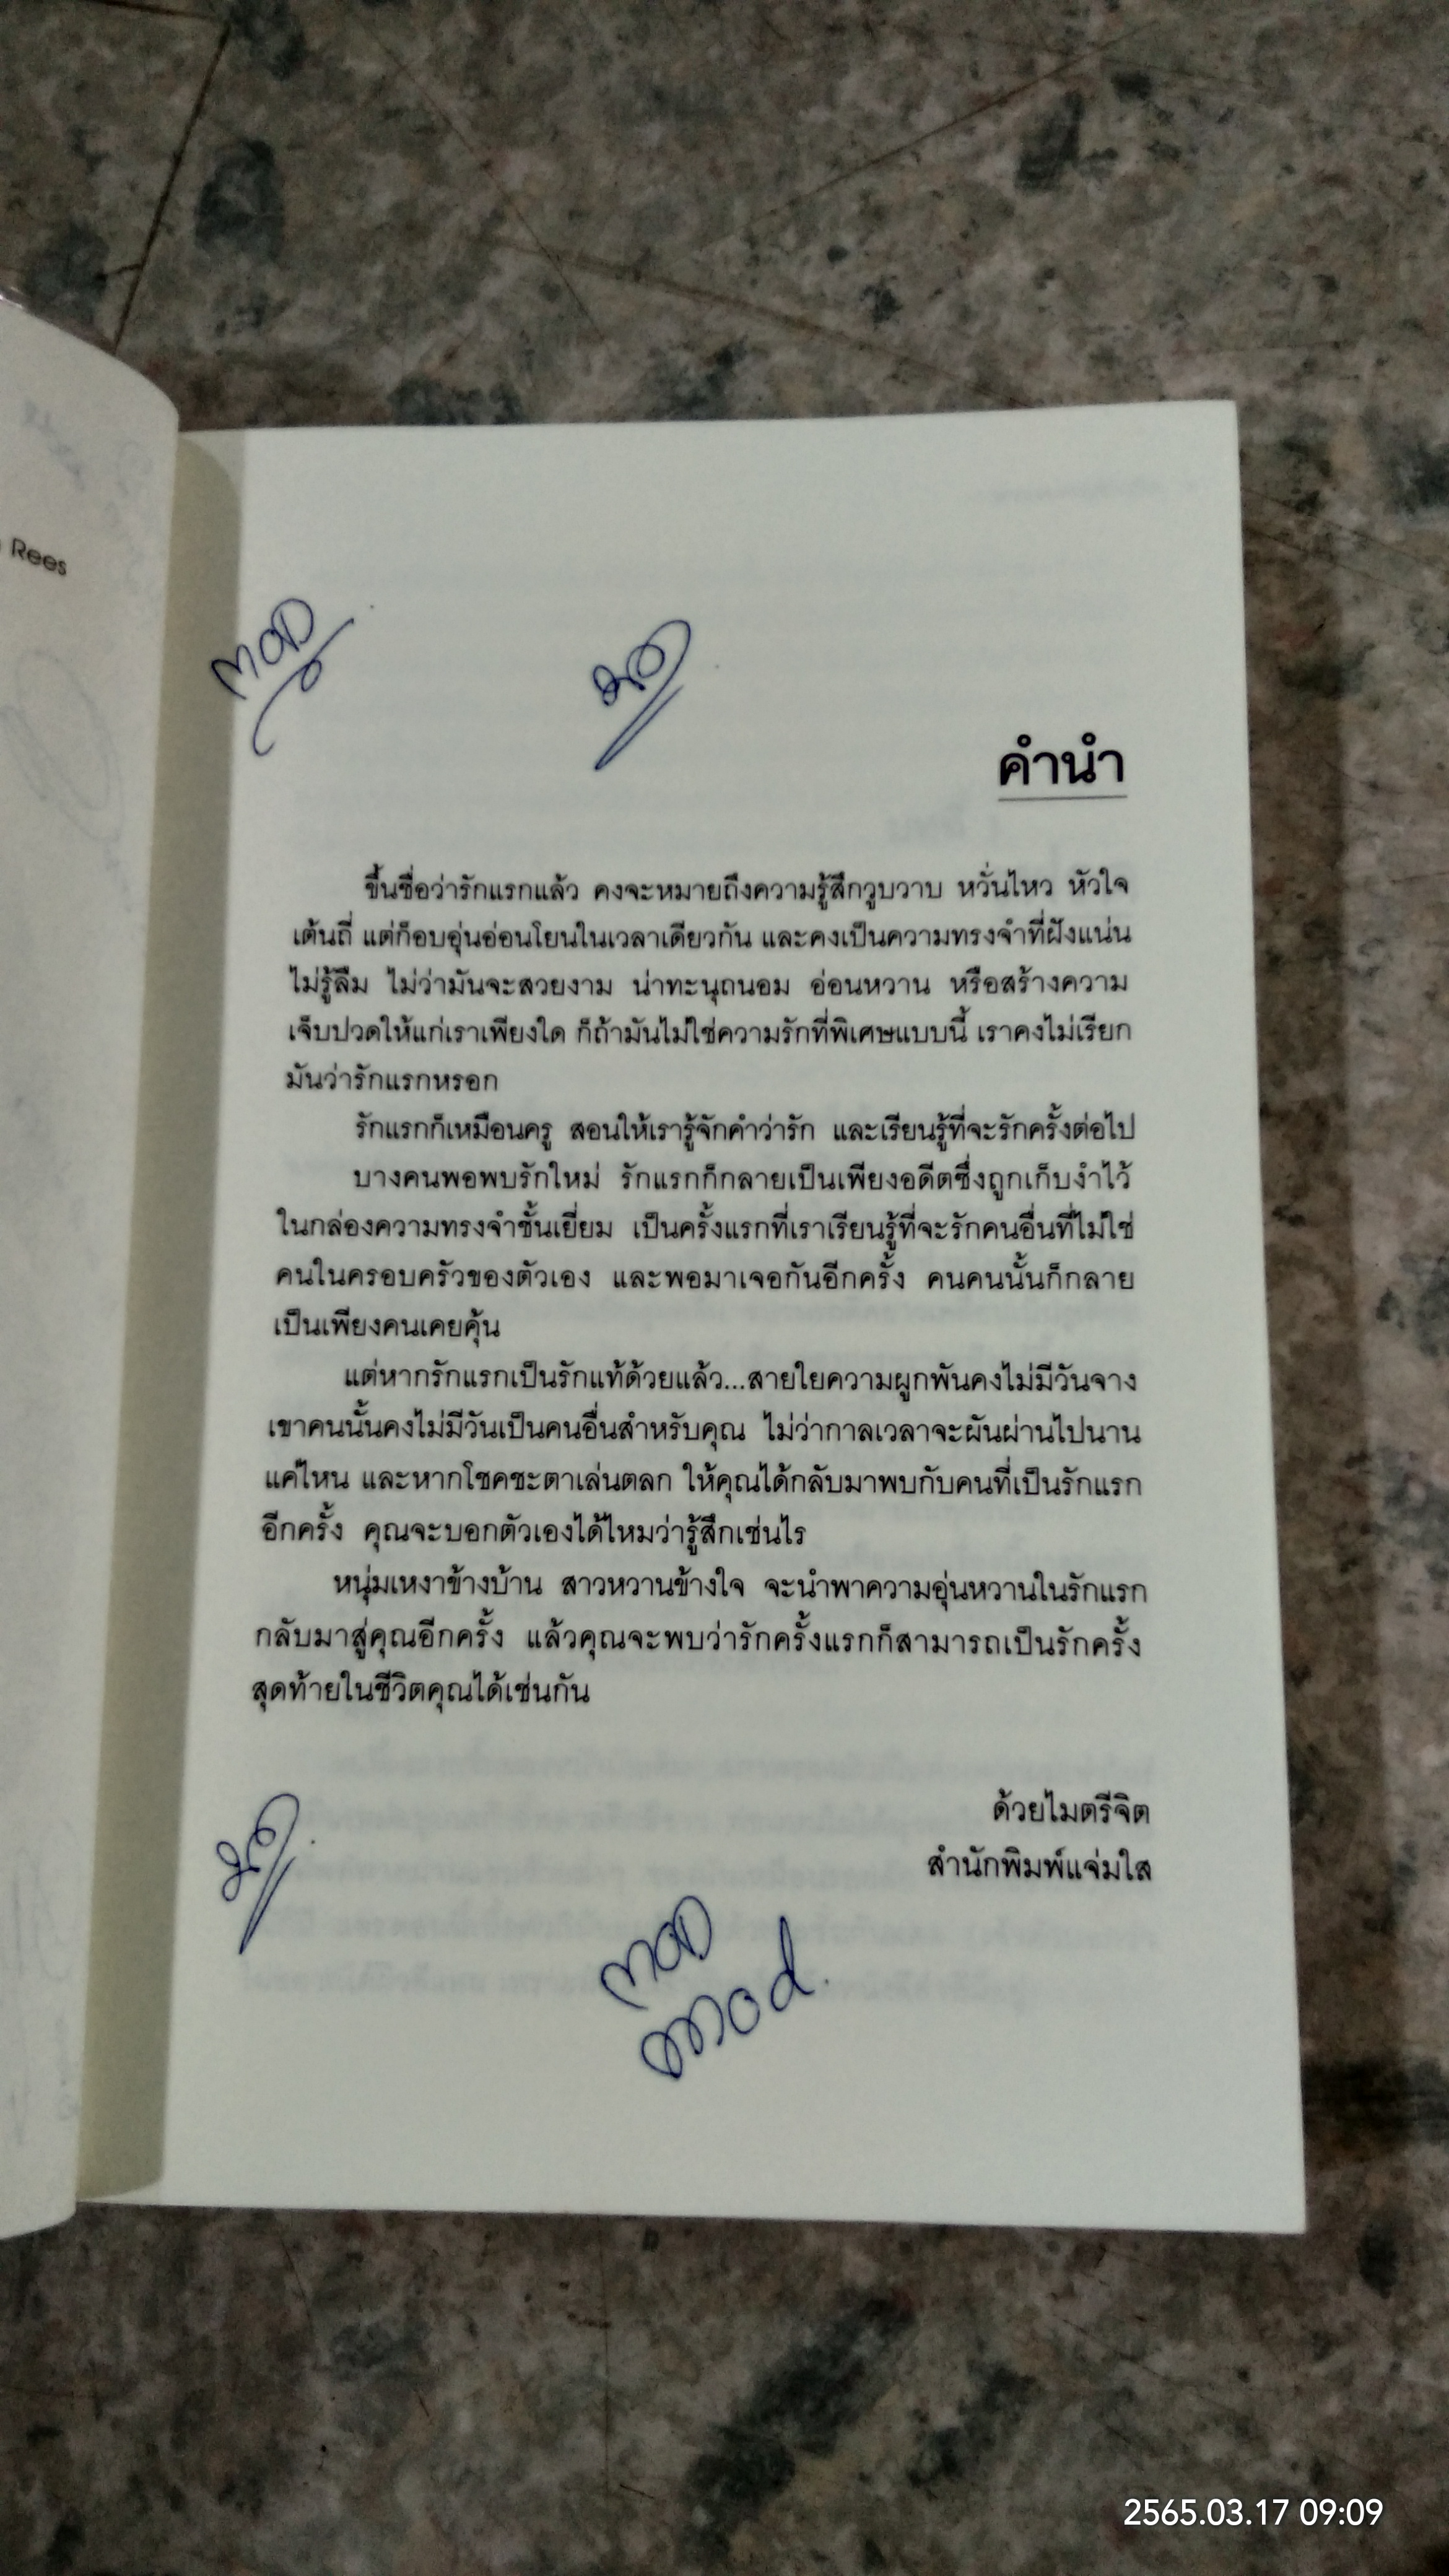 Rees
MOD
มด
คำนำ
ขึ้นชื่อว่ารักแรกแล้ว คงจะหมายถึงความรู้สึกวูบวาบ หวั่นไหว หัวใจ
เต้นถี่ แต่ก็อบอุ่นอ่อนโยนในเวลาเดียวกัน และคงเป็นความทรงจำที่ฝังแน่น
ไม่รู้ลืม ไม่ว่ามันจะสวยงาม น่าทะนุถนอม อ่อนหวาน หรือสร้างความ
เจ็บปวดให้แก่เราเพียงใด ก็ถ้ามันไม่ใช่ความรักที่พิเศษแบบนี้ เราคงไม่เรียก
มันว่ารักแรกหรอก
รักแรกก็เหมือนครู สอนให้เรารู้จักคำว่ารัก และเรียนรู้ที่จะรักครั้งต่อไป
บางคนพอพบรักใหม่ รักแรกก็กลายเป็นเพียงอดีตซึ่งถูกเก็บงำไว้
ในกล่องความทรงจำชั้นเยี่ยม เป็นครั้งแรกที่เราเรียนรู้ที่จะรักคนอื่นที่ไม่ใช่
คนในครอบครัวของตัวเอง และพอมาเจอกันอีกครั้ง คนคนนั้นก็กลาย
เป็นเพียงคนเคยคุ้น
แต่หากรักแรกเป็นรักแท้ด้วยแล้ว...สายใยความผูกพันคงไม่มีวันจาง
เขาคนนั้นคงไม่มีวันเป็นคนอื่นสำหรับคุณ ไม่ว่ากาลเวลาจะผันผ่านไปนาน
แค่ไหน และหากโชคชะตาเล่นตลก ให้คุณได้กลับมาพบกับคนที่เป็นรักแรก
อีกครั้ง คุณจะบอกตัวเองได้ไหมว่ารู้สึกเช่นไร
หนุ่มเหงาข้างบ้าน สาวหวานข้างใจ จะนำพาความอุ่นหวานในรักแรก
กลับมาสู่คุณอีกครั้ง แล้วคุณจะพบว่ารักครั้งแรกก็สามารถเป็นรักครั้ง
สุดท้ายในชีวิตคุณได้เช่นกัน
ด้วยไมตรีจิต
สำนักพิมพ์แจ่มใส
มด
MOD
mod
2565.03.17 09:09